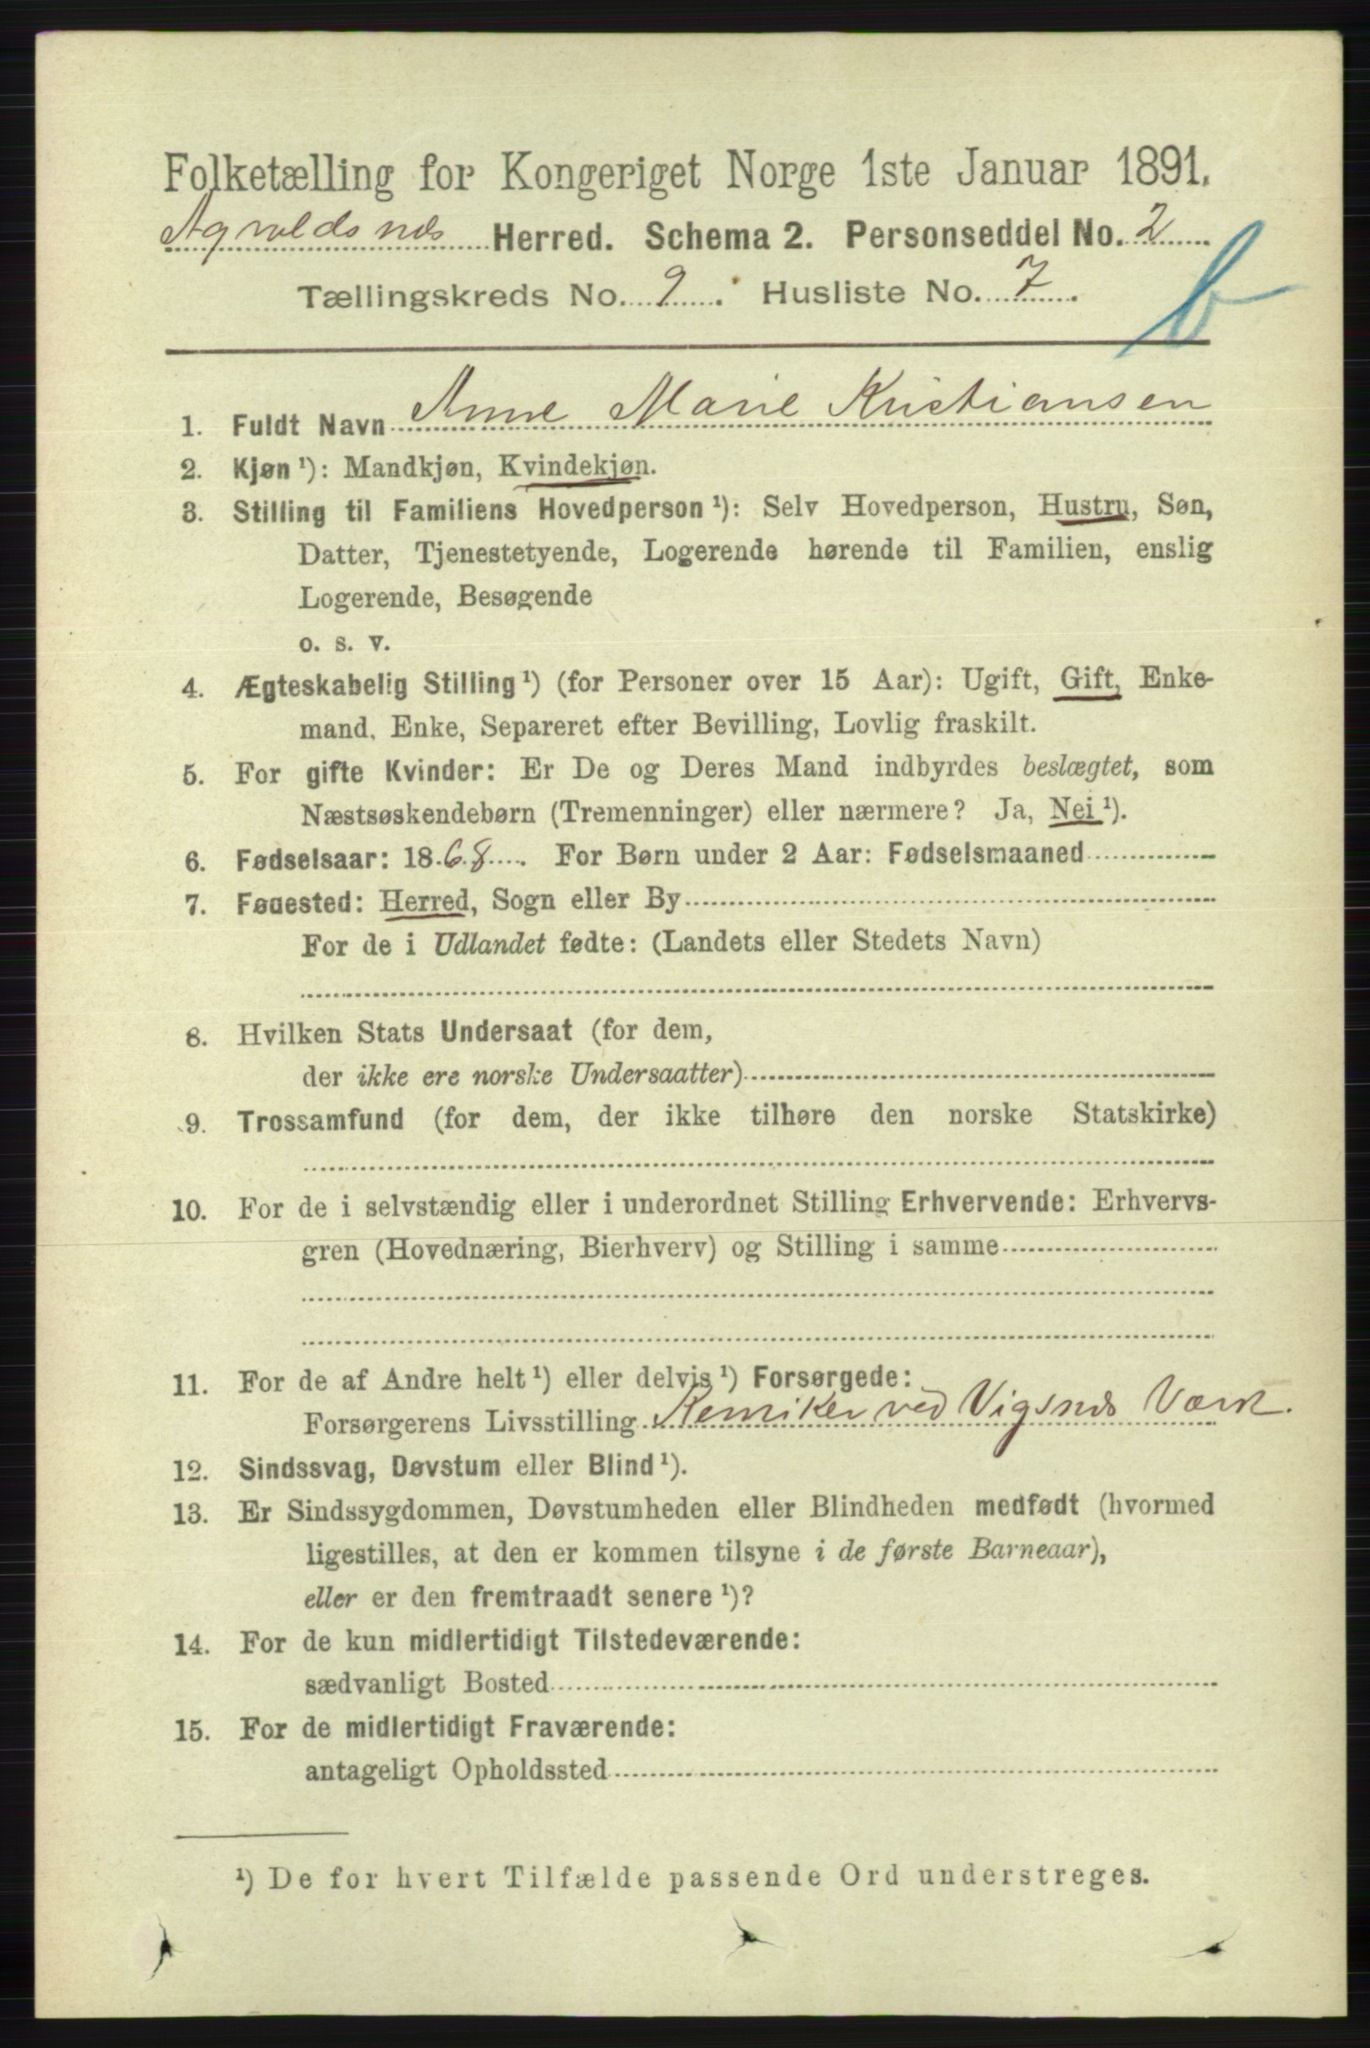 Folketælling for Kongeriget Norge 1ste Januar 1891.
Agvaldsnes Herred. Schema 2. Personseddel No. 2
Tællingskreds No. 9. Husliste No. 7.
b
1. Fuldt Navn Anne Marie Kristiansen
2. Kjøn ¹): Mandkjøn, Kvindekjøn.
3. Stilling til Familiens Hovedperson ¹): Selv Hovedperson, Hustru, Søn,
Datter, Tjenestetyende, Logerende hørende til Familien, enslig
Logerende, Besøgende
o. s. v.
4. Ægteskabelig Stilling ¹) (for Personer over 15 Aar): Ugift, Gift, Enke-
mand, Enke, Separeret efter Bevilling, Lovlig fraskilt.
5. For gifte Kvinder: Er De og Deres Mand indbyrdes beslægtet, som
Næstsøskendebørn (Tremenninger) eller nærmere? Ja, Nei ¹).
6. Fødselsaar: 1868. For Børn under 2 Aar: Fødselsmaaned
7. Fødested: Herred, Sogn eller By
For de i Udlandet fødte: (Landets eller Stedets Navn)
8. Hvilken Stats Undersaat (for dem,
der ikke ere norske Undersaatter)
9. Trossamfund (for dem, der ikke tilhøre den norske Statskirke)
10. For de i selvstændig eller i underordnet Stilling Erhvervende: Erhvervs-
gren (Hovednæring, Bierhverv) og Stilling i samme
11. For de af Andre helt ¹) eller delvis ¹) Forsørgede:
Forsørgerens Livsstilling Kemiker ved Vigsnes Værk.
12. Sindssvag, Døvstum eller Blind ¹).
13. Er Sindssygdommen, Døvstumheden eller Blindheden medfødt (hvormed
ligestilles, at den er kommen tilsyne i de første Barneaar),
eller er den fremtraadt senere ¹)?
14. For de kun midlertidigt Tilstedeværende:
sædvanligt Bosted
15. For de midlertidigt Fraværende:
antageligt Opholdssted
¹) De for hvert Tilfælde passende Ord understreges.